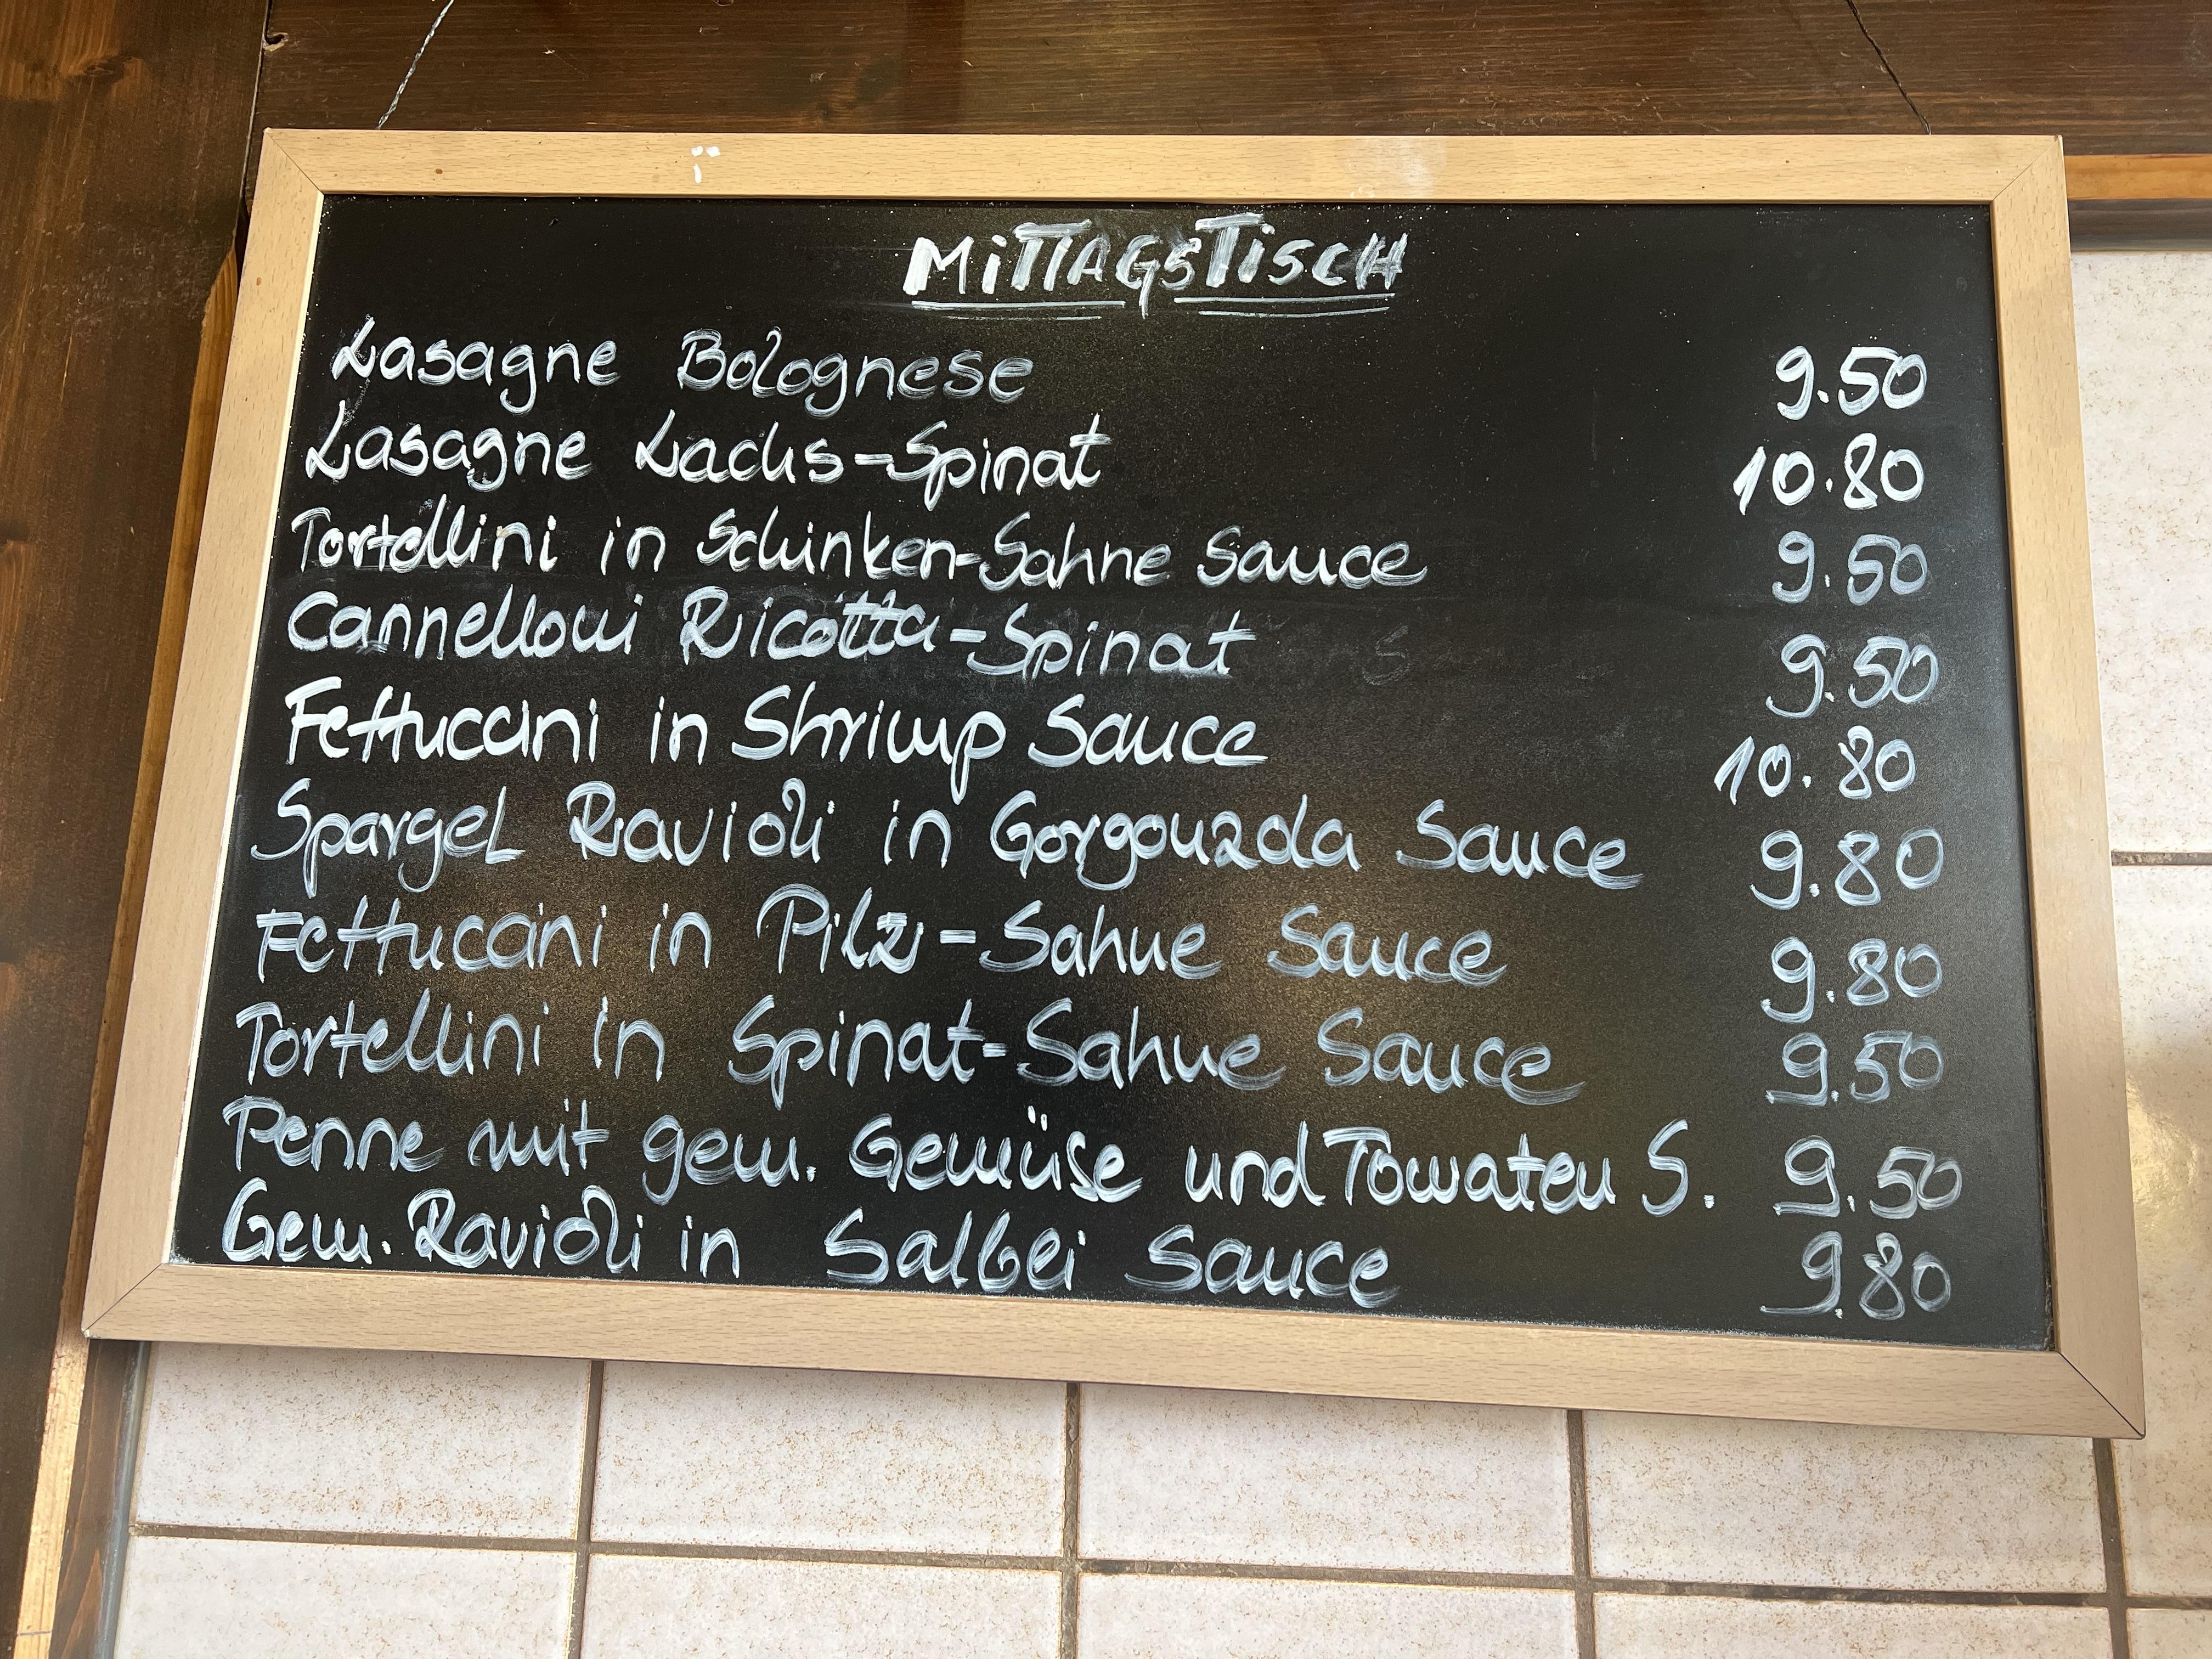 MiTTAGSTiSCH
Lasagne Bolognese 9.50
Lasagne Lachs-Spinat 10.80
Tortellini in Schinken-Sahne Sauce 9.50
Cannelloni Ricotta-Spinat 9.50
Fettuccini in Shrimp Sauce 10.80
Spargel Ravioli in Gorgonzola Sauce 9.80
Fettuccini in Pilz-Sahne Sauce 9.80
Tortellini in Spinat-Sahne Sauce 9.50
Penne mit gem. Gemüse und Tomaten S. 9.50
Gem. Ravioli in Salbei Sauce 9.80